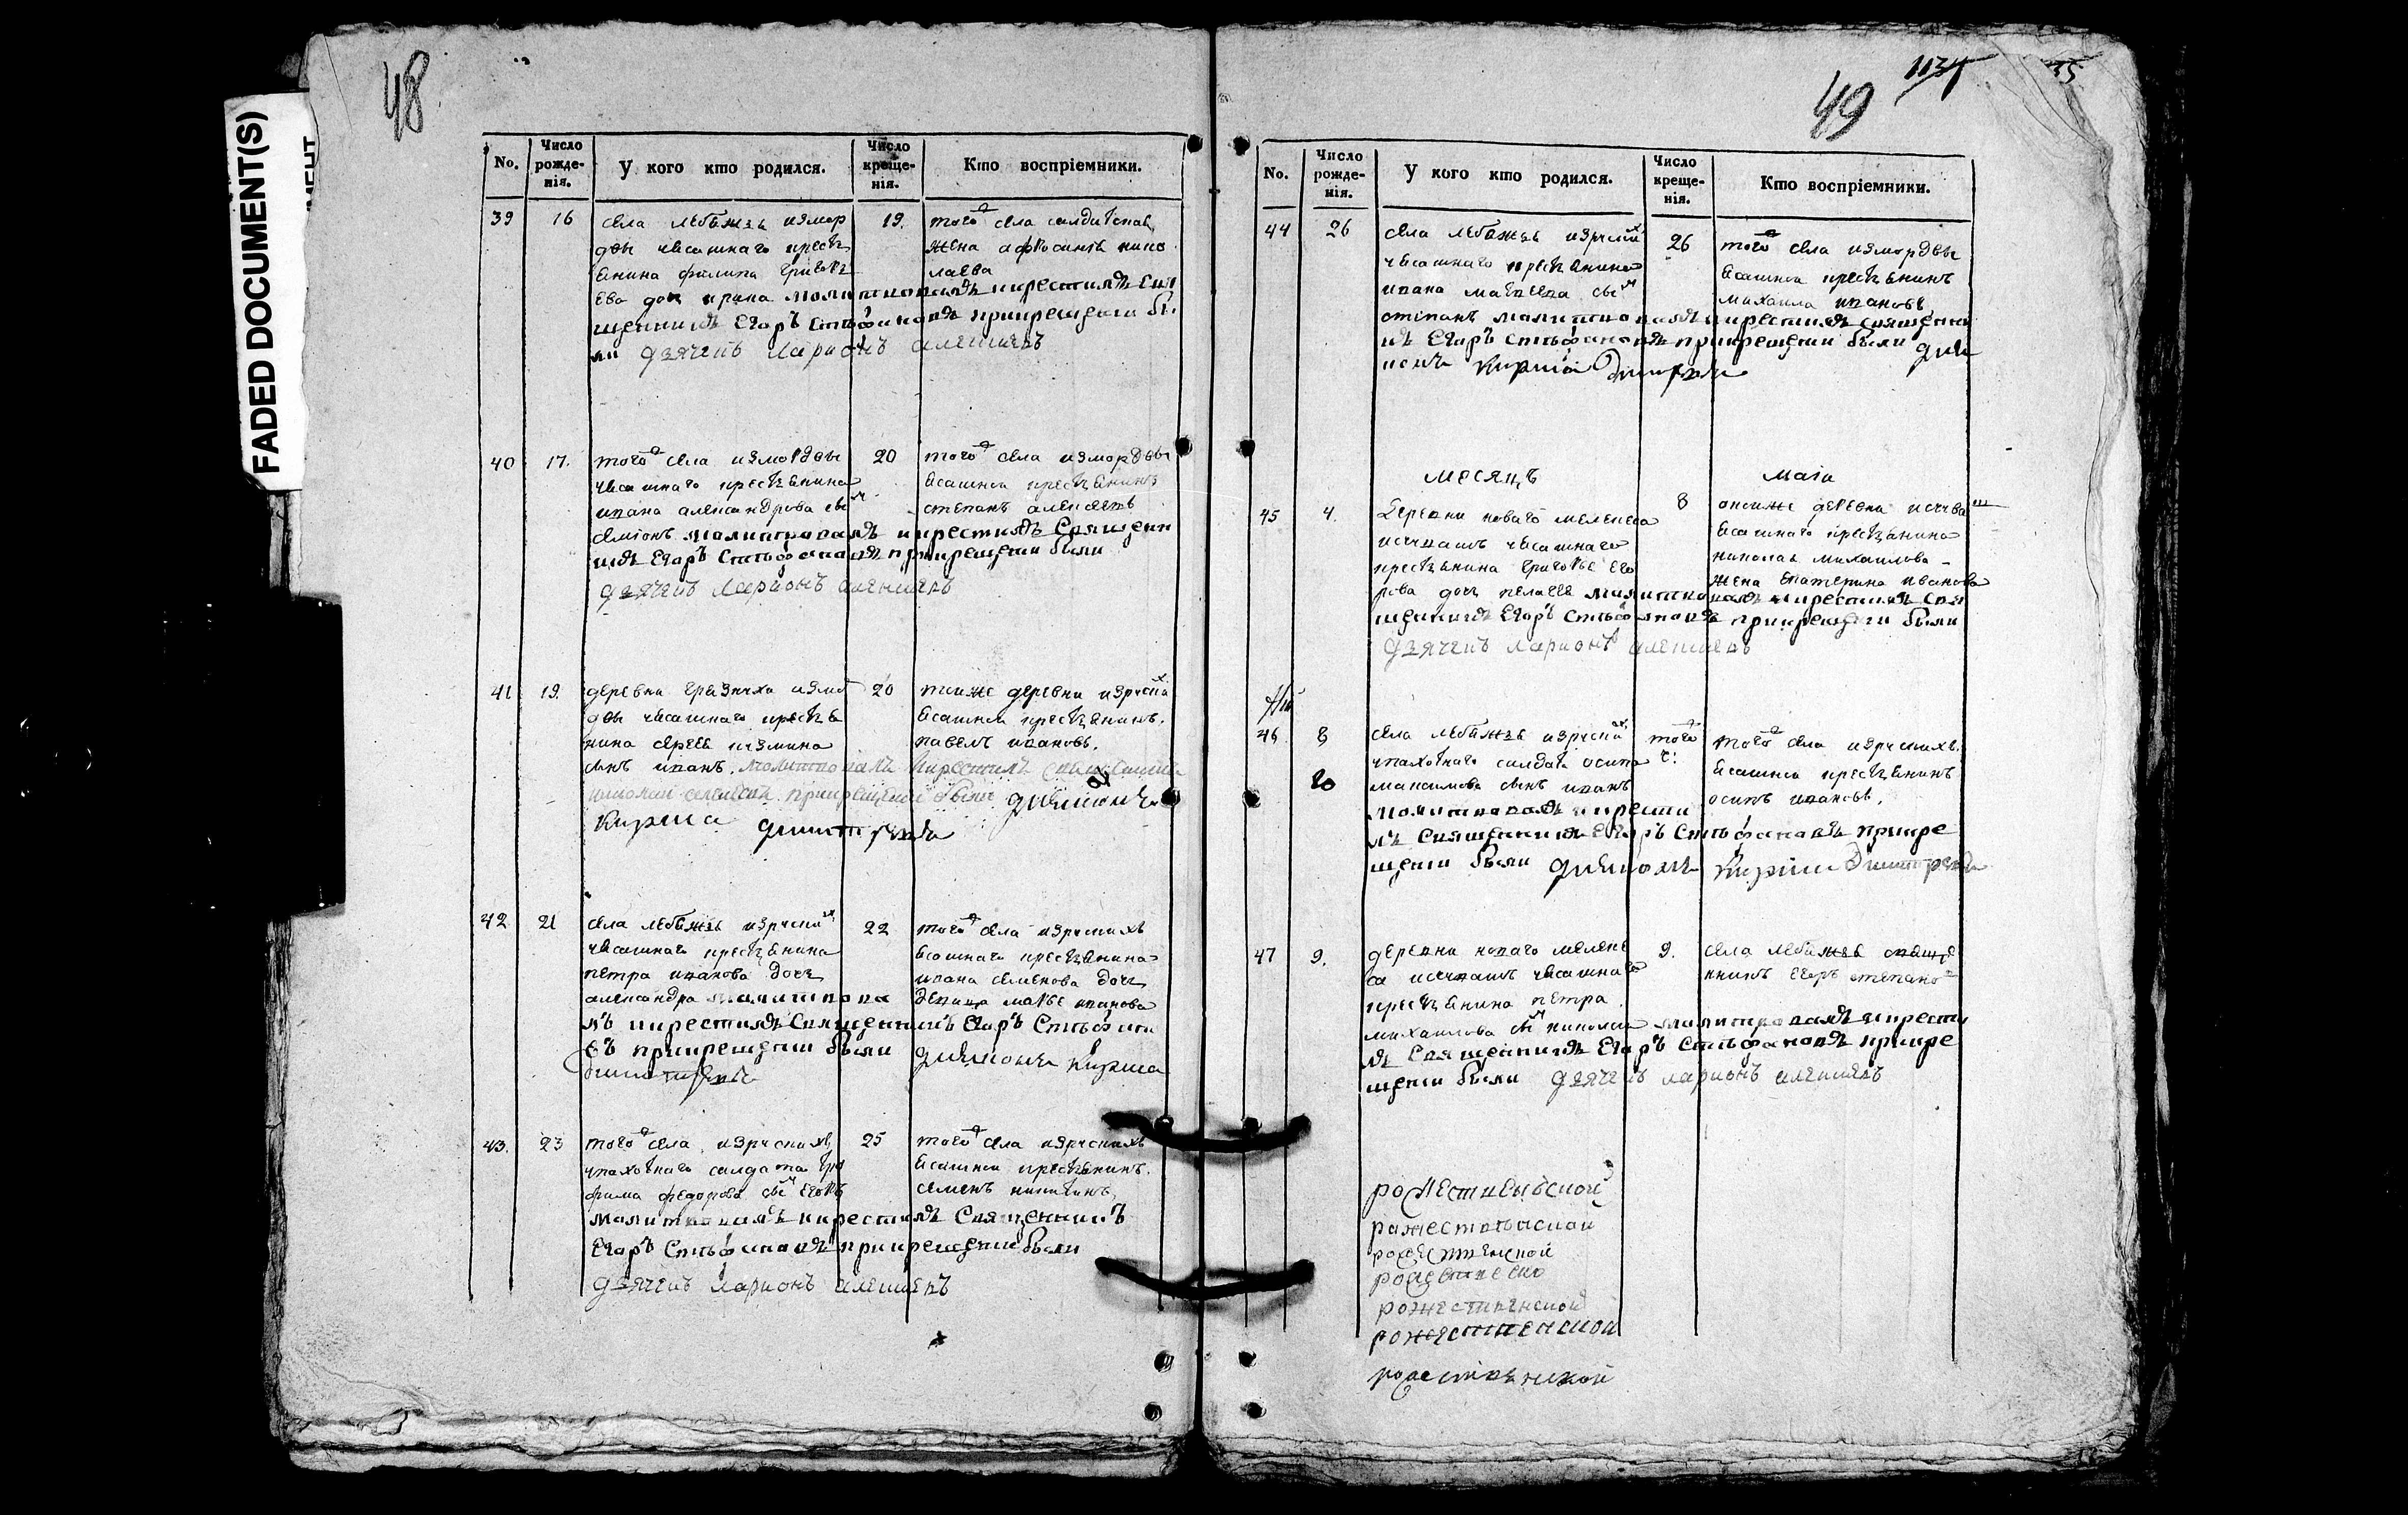 FADED DOCUMENT(S)
48
No.
Число рожде-нія.
У кого кто родился.
Число креще-нія.
Кто воспріемники.
39 16
села лебяжья измор
двы ясашнаго кресть
янина филипа григорь
ева дочь ирина молитвовалъ икрестилъ свя
щенникъ Егоръ Стефановъ прикрещении бы
ли дьячекъ Ларионъ алексѣевъ
19.
того села салдатская
жена афросинья нико
лаева
40 17.
того села измордвы
ясашнаго крестьянина
ивана александрова сынъ
семионъ молитвовалъ икрестилъ Священн
икъ Егоръ Стефановъ прикрещении были
дьячекъ Ларионъ алексѣевъ
20
того села измордвы
ясашной крестьянинъ
степанъ алексѣевъ
41 19.
деревни грязнуха измо
двы ясашнаго крестья
нина сергея кузмина
сынъ иванъ. молитвовалъ икрестилъ священни
николай алексѣевъ прикрещении были дьякон
кирила димитревъ
20
тоиже деревни изруских
ясашной крестьянинъ.
павелъ ивановъ.
42 21
села лебяжья изруских
ясашнаго крестьянина
петра иванова дочь
александра молитвова
лъ икрестилъ Священникъ Егоръ Стефано
въ прикрещении были дьяконъ кирила
димитревъ
22
того села изрускихъ
ясашнаго крестьянина
ивана семенова дочь
девица марья иванова
43. 23
того села изрускихъ
пахотнаго салдата тро
фима федорова сынъ Егоръ
молитвовалъ икрестилъ Священникъ
Егоръ Стефановъ прикрещении были
дьячекъ Ларионъ алексѣевъ
25
того села изрускихъ
ясашной крестьянинъ.
семенъ никитинъ
49
35
No.
Число рожде-нія.
У кого кто родился.
Число креще-нія.
Кто воспріемники.
44 26
села лебяжья изруских
ясашнаго крестьянина
ивана матвеева сынъ
степанъ молитвовалъ икрестилъ священни
къ Егоръ Стефановъ прикрещении были дья
конъ Кирила Димитревъ
26
того села измордвы
ясашной крестьянинъ
михаила ивановъ
месяцъ маіа
45 4.
деревни новаго мелекеса
исчувашъ ясашнаго
крестьянина григорья его
рова дочь пелагея молитвовалъ икрестилъ свя
щенникъ Егоръ Стефановъ прикрещении были
дьячекъ Ларионъ алексѣевъ
8
оноиже деревни исчуваш
ясашнаго крестьянина
николая михаилова
жена екатерина иванова
46 8
20
села лебяжья изруских
пахотнаго салдата осипа
максимова сынъ иванъ
молитвовалъ икрести
лъ Священникъ Егоръ Стефановъ прикре
щении были дьяконъ Кирила Димитревъ
того ч:
того села изрускихъ
ясашной крестьянинъ
осипъ ивановъ.
47 9.
деревни новаго мелеке
са исчувашъ ясашнаго
крестьянина петра
михаилова сынъ николай молитвовалъ икрести
лъ Священникъ Егоръ Стефановъ прикре
щении были дьячекъ Ларионъ алексѣевъ
9.
села лебяжья священ
никъ Егоръ степанов
рожественской
рожественской
рожественской